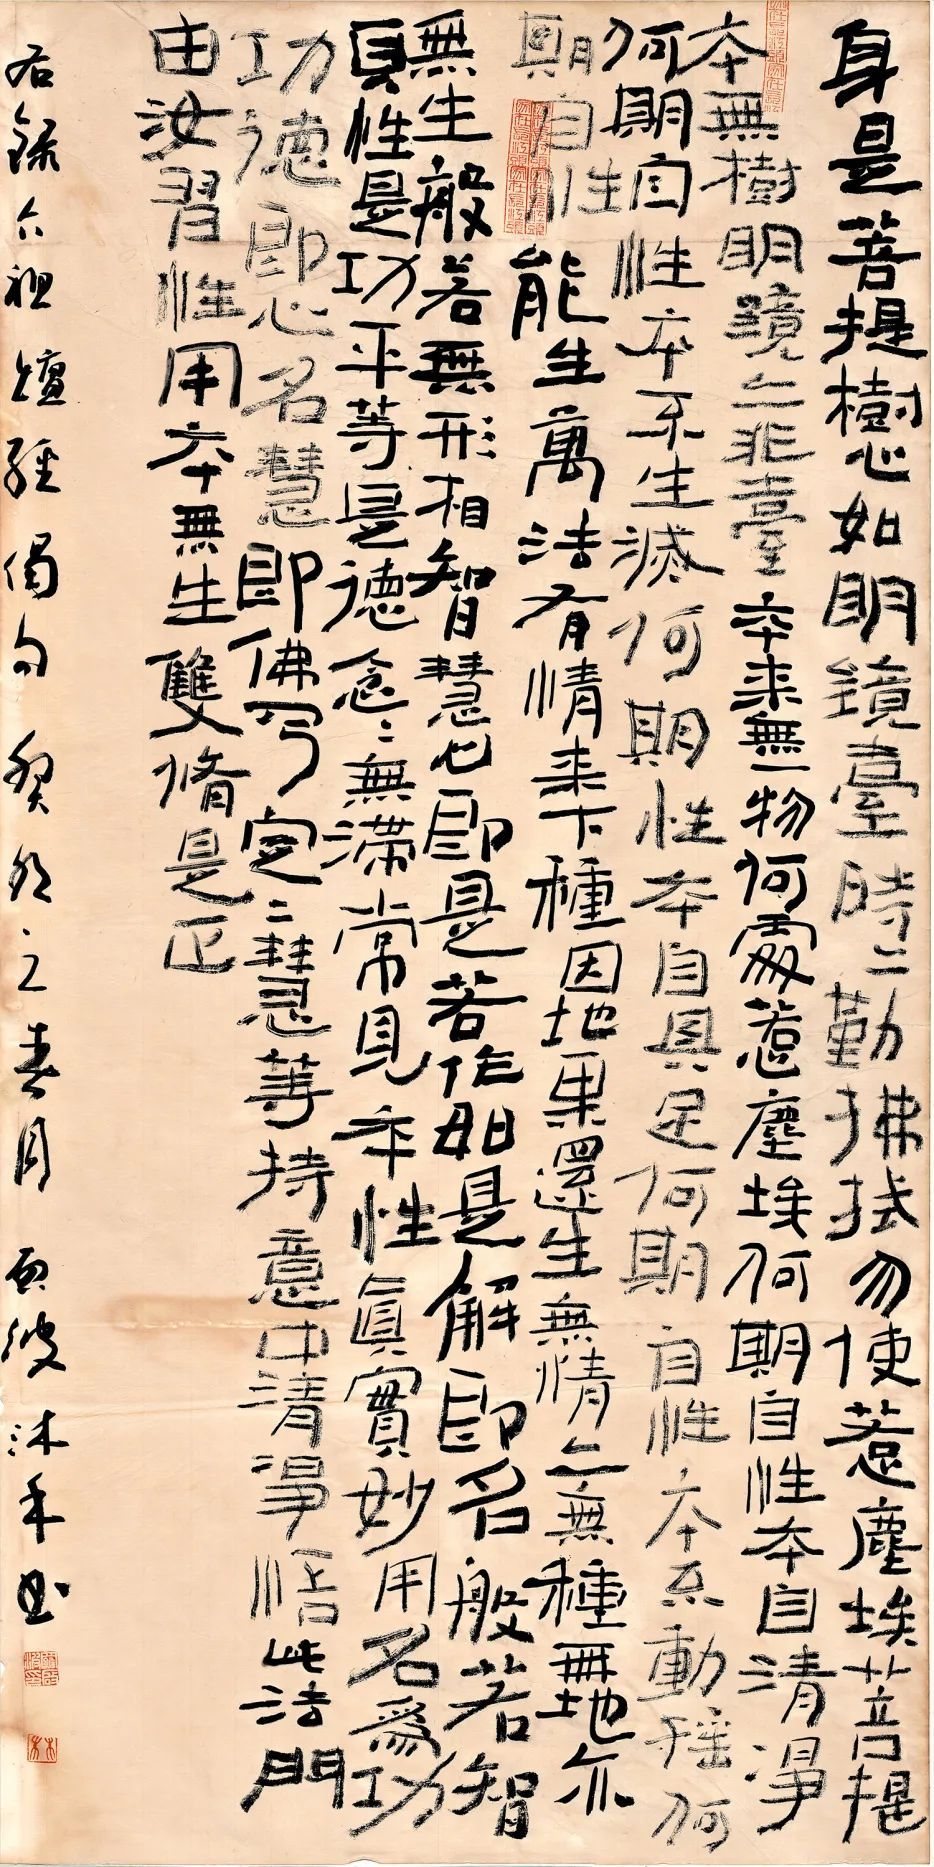 身是菩提樹心如明鏡臺時二勤拂拭勿使惹塵埃菩提
本無樹明鏡亦非臺本来無一物何處惹塵埃何期自性本自清淨
何期自性本不生滅何期性本自具足何期自性本不動搖何
期自性能生萬法有情来下種因地果還生無情亦無種無地亦
無生般若無形相智慧心即是若作如是解即名般若智
見性是功平等是德念二無滞常見本性真實妙用名為功
功德即心名慧即佛乃定定二慧等持意中清淨悟此法門
由汝習性用本無生雙脩是正
右錄六祖壇經偈句癸卯之春月 沐手書